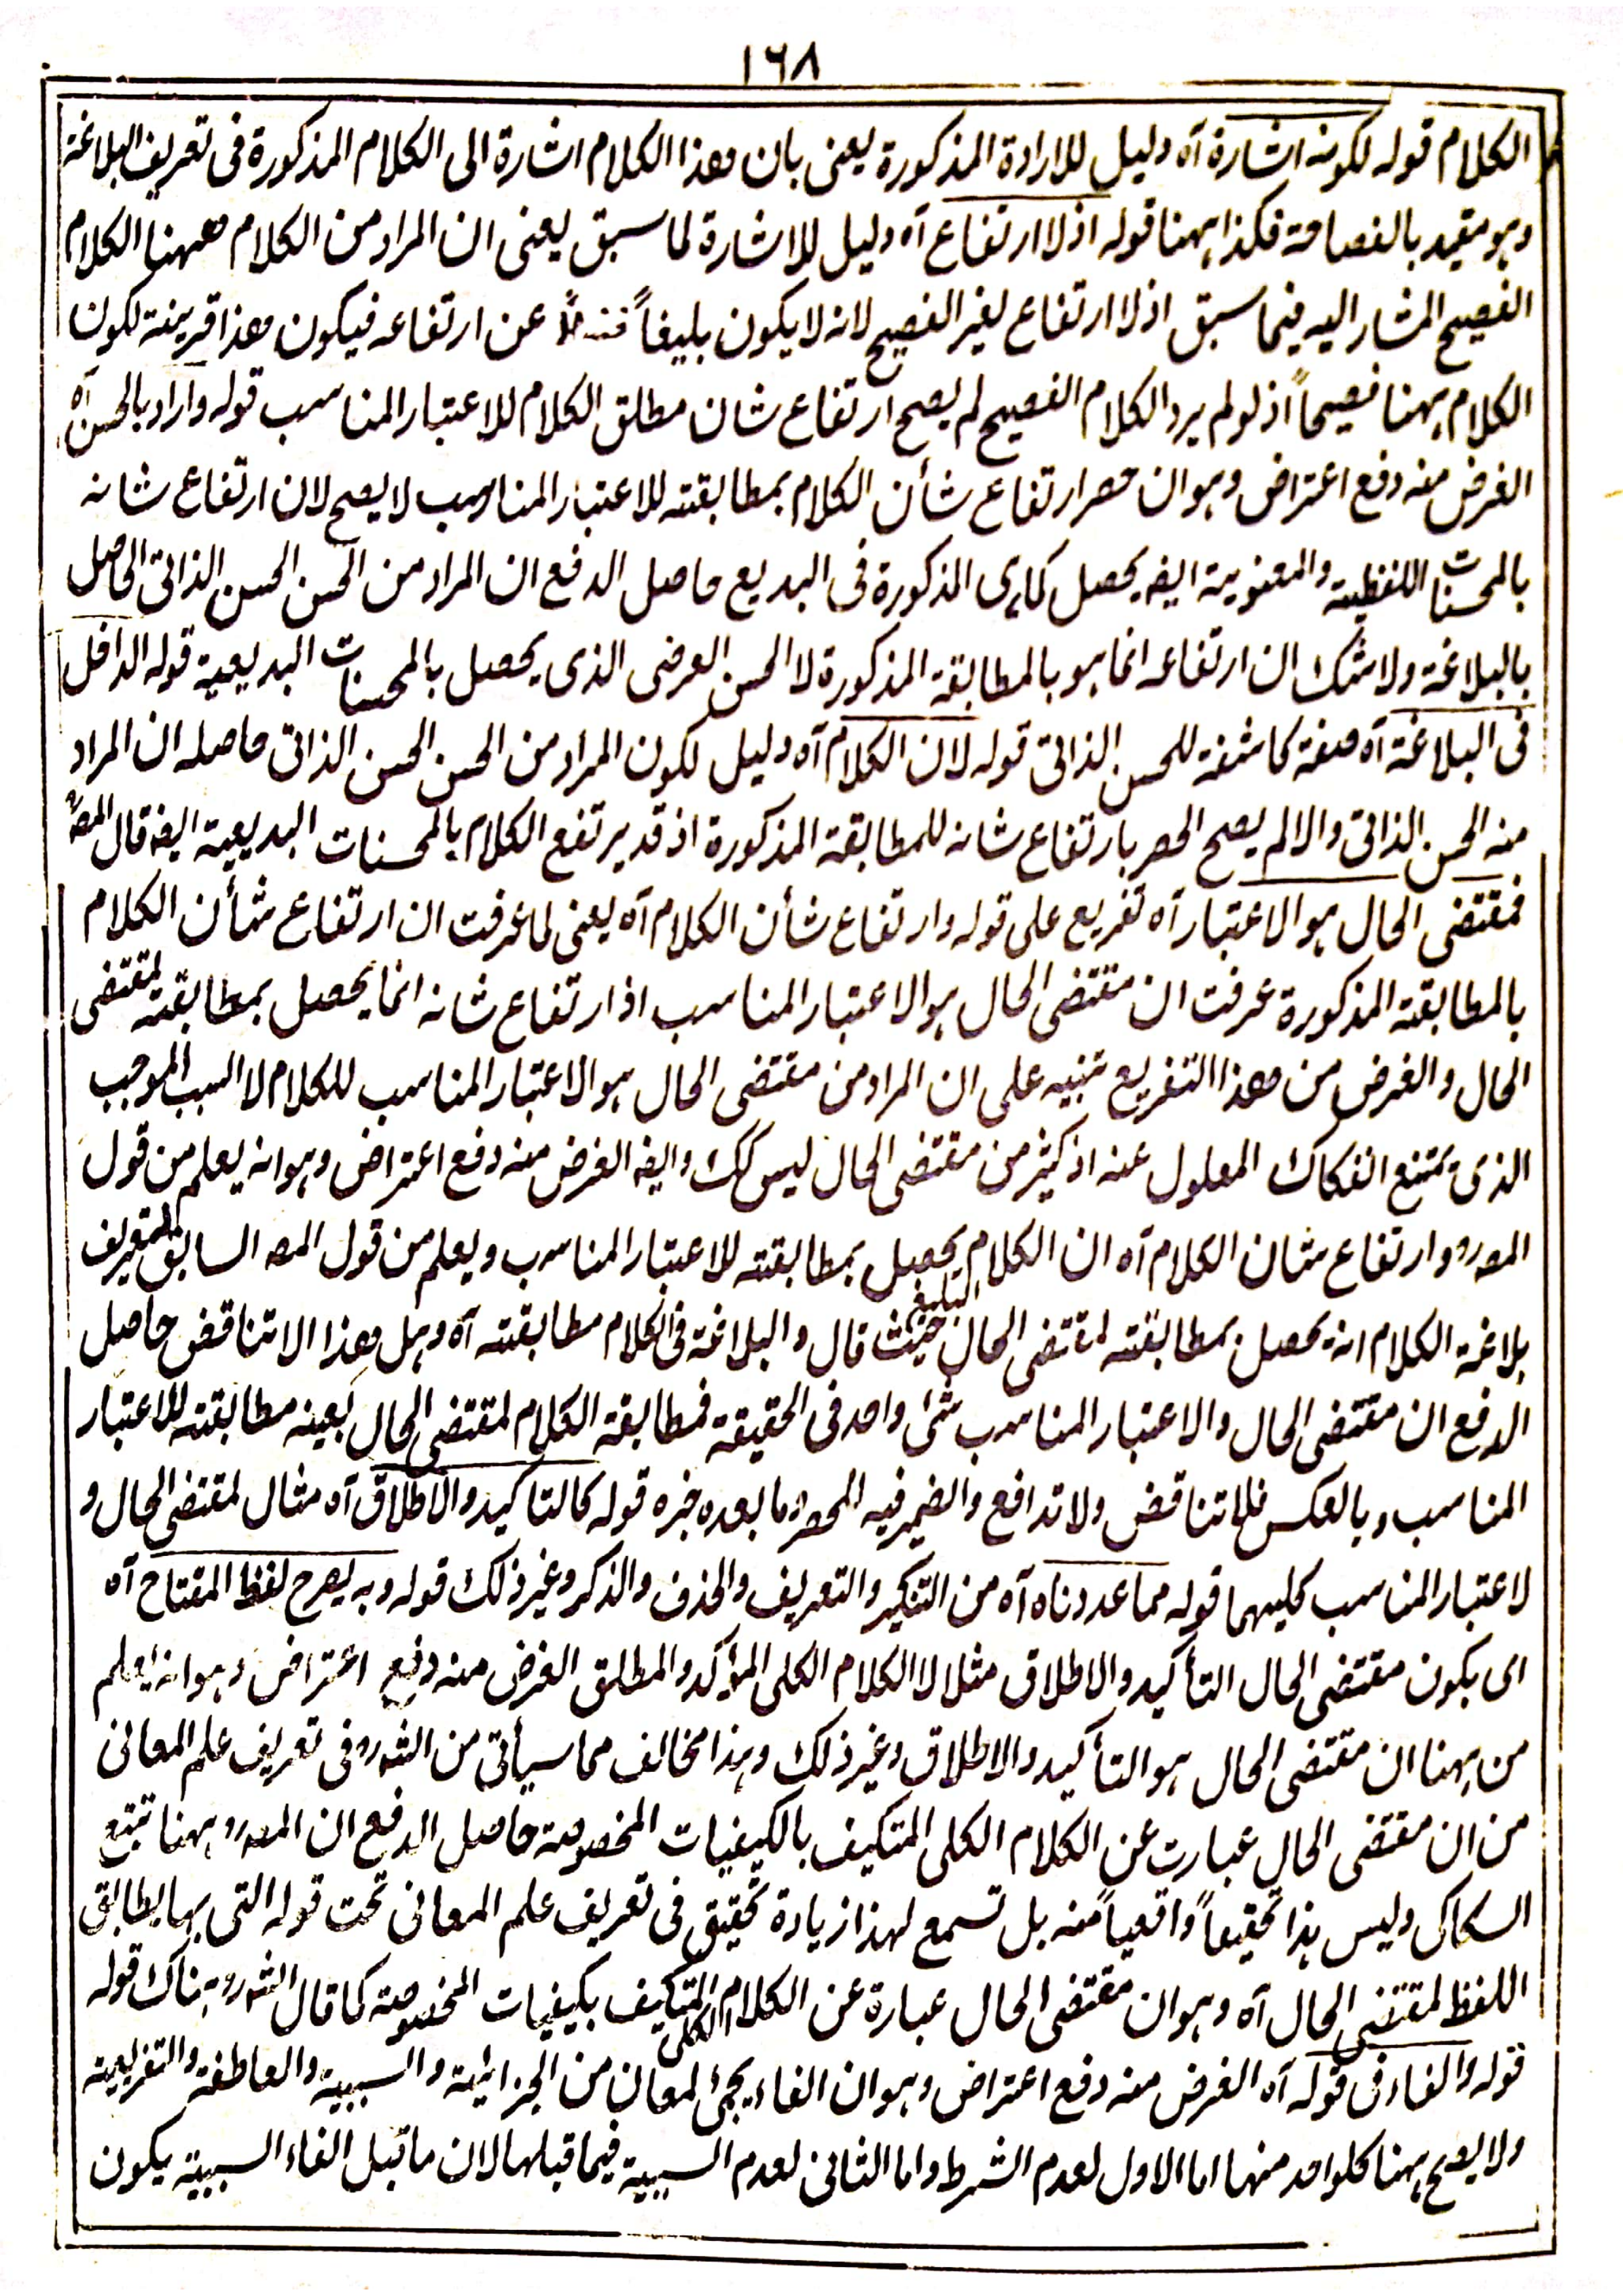 ١٦٨
الكلام قوله لكونه اشارة آه دليل للارادة المذكورة يعنى بان هذا الكلام اشارة الى الكلام المذكورة فى تعريف البلاغة
وهو مقيد بالفصاحة فكذا ههنا قوله اذ لا ارتفاع آه دليل للاشارة لما سبق يعنى ان المراد من الكلام ههنا الكلام
الفصيح المشار اليه فيما سبق اذ لا ارتفاع لغير الفصيح لانه لا يكون بليغاً فضلاً عن ارتفاعه فيكون هذا قرينة لكون
الكلام ههنا فصيحاً اذ لو لم يرد الكلام الفصيح لم يصح ارتفاع شان مطلق الكلام للاعتبار المناسب قوله واراد بالحسن آه
الغرض منه دفع اعتراض وهو ان حصر ارتفاع شأن الكلام بمطابقته للاعتبار المناسب لا يصح لان ارتفاع شانه
بالمحسنات اللفظية والمعنوية ايضه يحصل كما هى المذكورة فى البديع حاصل الدفع ان المراد من الحسن الحسن الذاتى الحاصل
بالبلاغة ولا شك ان ارتفاعه انما هو بالمطابقة المذكورة لا الحسن العرضى الذى يحصل بالمحسنات البديعية قوله الداخل
فى البلاغة آه صفة كاشفة للحسن الذاتى قوله لان الكلام آه دليل لكون المراد من الحسن الحسن الذاتى حاصله ان المراد
منه الحسن الذاتى والا لم يصح الحصر بارتفاع شانه للمطابقة المذكورة اذ قد يرتفع الكلام بالمحسنات البديعية ايضه قال المصؒ
فمقتضى الحال هو الاعتبار آه تفريع على قوله وارتفاع شأن الكلام آه يعنى لما عرفت ان ارتفاع شأن الكلام
بالمطابقة المذكورة عرفت ان مقتضى الحال هو الاعتبار المناسب اذ ارتفاع شانه انما يحصل بمطابقته لمقتضى
الحال والغرض من هذا التفريع تنبيه على ان المراد من مقتضى الحال هو الاعتبار المناسب للكلام لا السبب الموجب
الذى يمتنع انفكاك المعلول عنه اذ كثير من مقتضى الحال ليس كك وايضه الغرض منه دفع اعتراض وهو انه يعلم من قول
المصرو وارتفاع شان الكلام آه ان الكلام يحصل بمطابقته للاعتبار المناسب ويعلم من قول المصه السابق لتعريف
بلاغة الكلام انه يحصل بمطابقته لمقتضى الحال حيث قال والبلاغة فى الكلام مطابقته آه وهل هذا الا تناقض حاصل
الدفع ان مقتضى الحال والاعتبار المناسب شئ واحد فى الحقيقة فمطابقة الكلام لمقتضى الحال بعينه مطابقته للاعتبار
المناسب وبالعكس فلا تناقض ولا تدافع والضمير فيه المحصر وما بعده خبره قوله كالتاكيد والاطلاق آه مثال لمقتضى الحال و
لاعتبار المناسب كليهما قوله مما عددناه آه من التنكير والتعريف والحذف والذكر وغير ذلك قوله وبه يصرح لفظ المفتاح آه
اى بكون مقتضى الحال التأكيد والاطلاق مثلا لا الكلام الكلى المؤكد والمطلق الغرض منه دفع اعتراض وهو انه يعلم
من ههنا ان مقتضى الحال هو التأكيد والاطلاق وغير ذلك وهذا مخالف مما سيأتى من الشرو فى تعريف علم المعانى
من ان مقتضى الحال عبارت عن الكلام الكلى المتكيف بالكيفيات المخصوصة حاصل الدفع ان المصرو ههنا تبتع
السكاكى وليس هذا تحقيقاً واقعياً منه بل تسمع لهذا زيادة تحقيق فى تعريف علم المعانى تحت قوله التى بها يطابق
اللفظ لمقتضى الحال آه وهو ان مقتضى الحال عبارة عن الكلام الكلى المتكيف بكيفيات المخصوصة كما قال الشرو هناك قوله
قوله والفاء فى قوله آه الغرض منه دفع اعتراض وهو ان الفاء يجئ لمعان من الجزائية والسببية والعاطفة والتفريعية
ولا يصح ههنا كلواحد منها اما الاول لعدم الشرط واما الثانى لعدم السببية فيما قبلها لان ما قبل الفاء السببية يكون